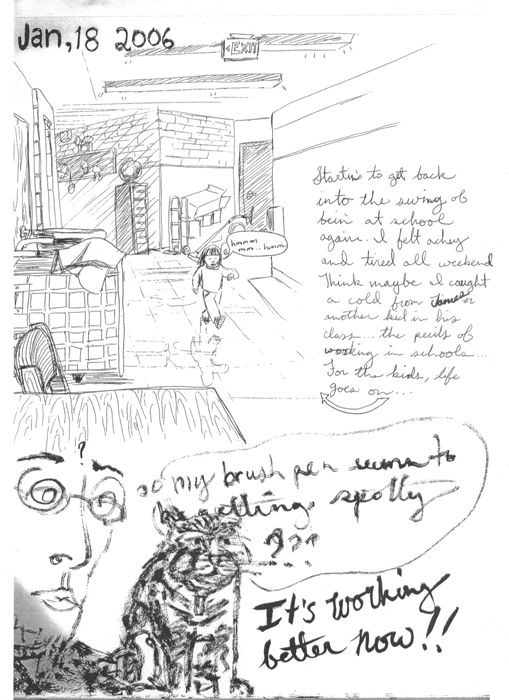 Jan, 18 2006
EXIT
Startin's to get back
into the swing of
bein at school
again. I felt achey
and tired all weekend
Think maybe I caught
a cold from James or
another kid in his
class... the perils of
working in schools...
For the kids, life
goes on...
hmmm
mm... hmm
?
so my brush pen seems to
be getting spotty
???
It's working
better now!!